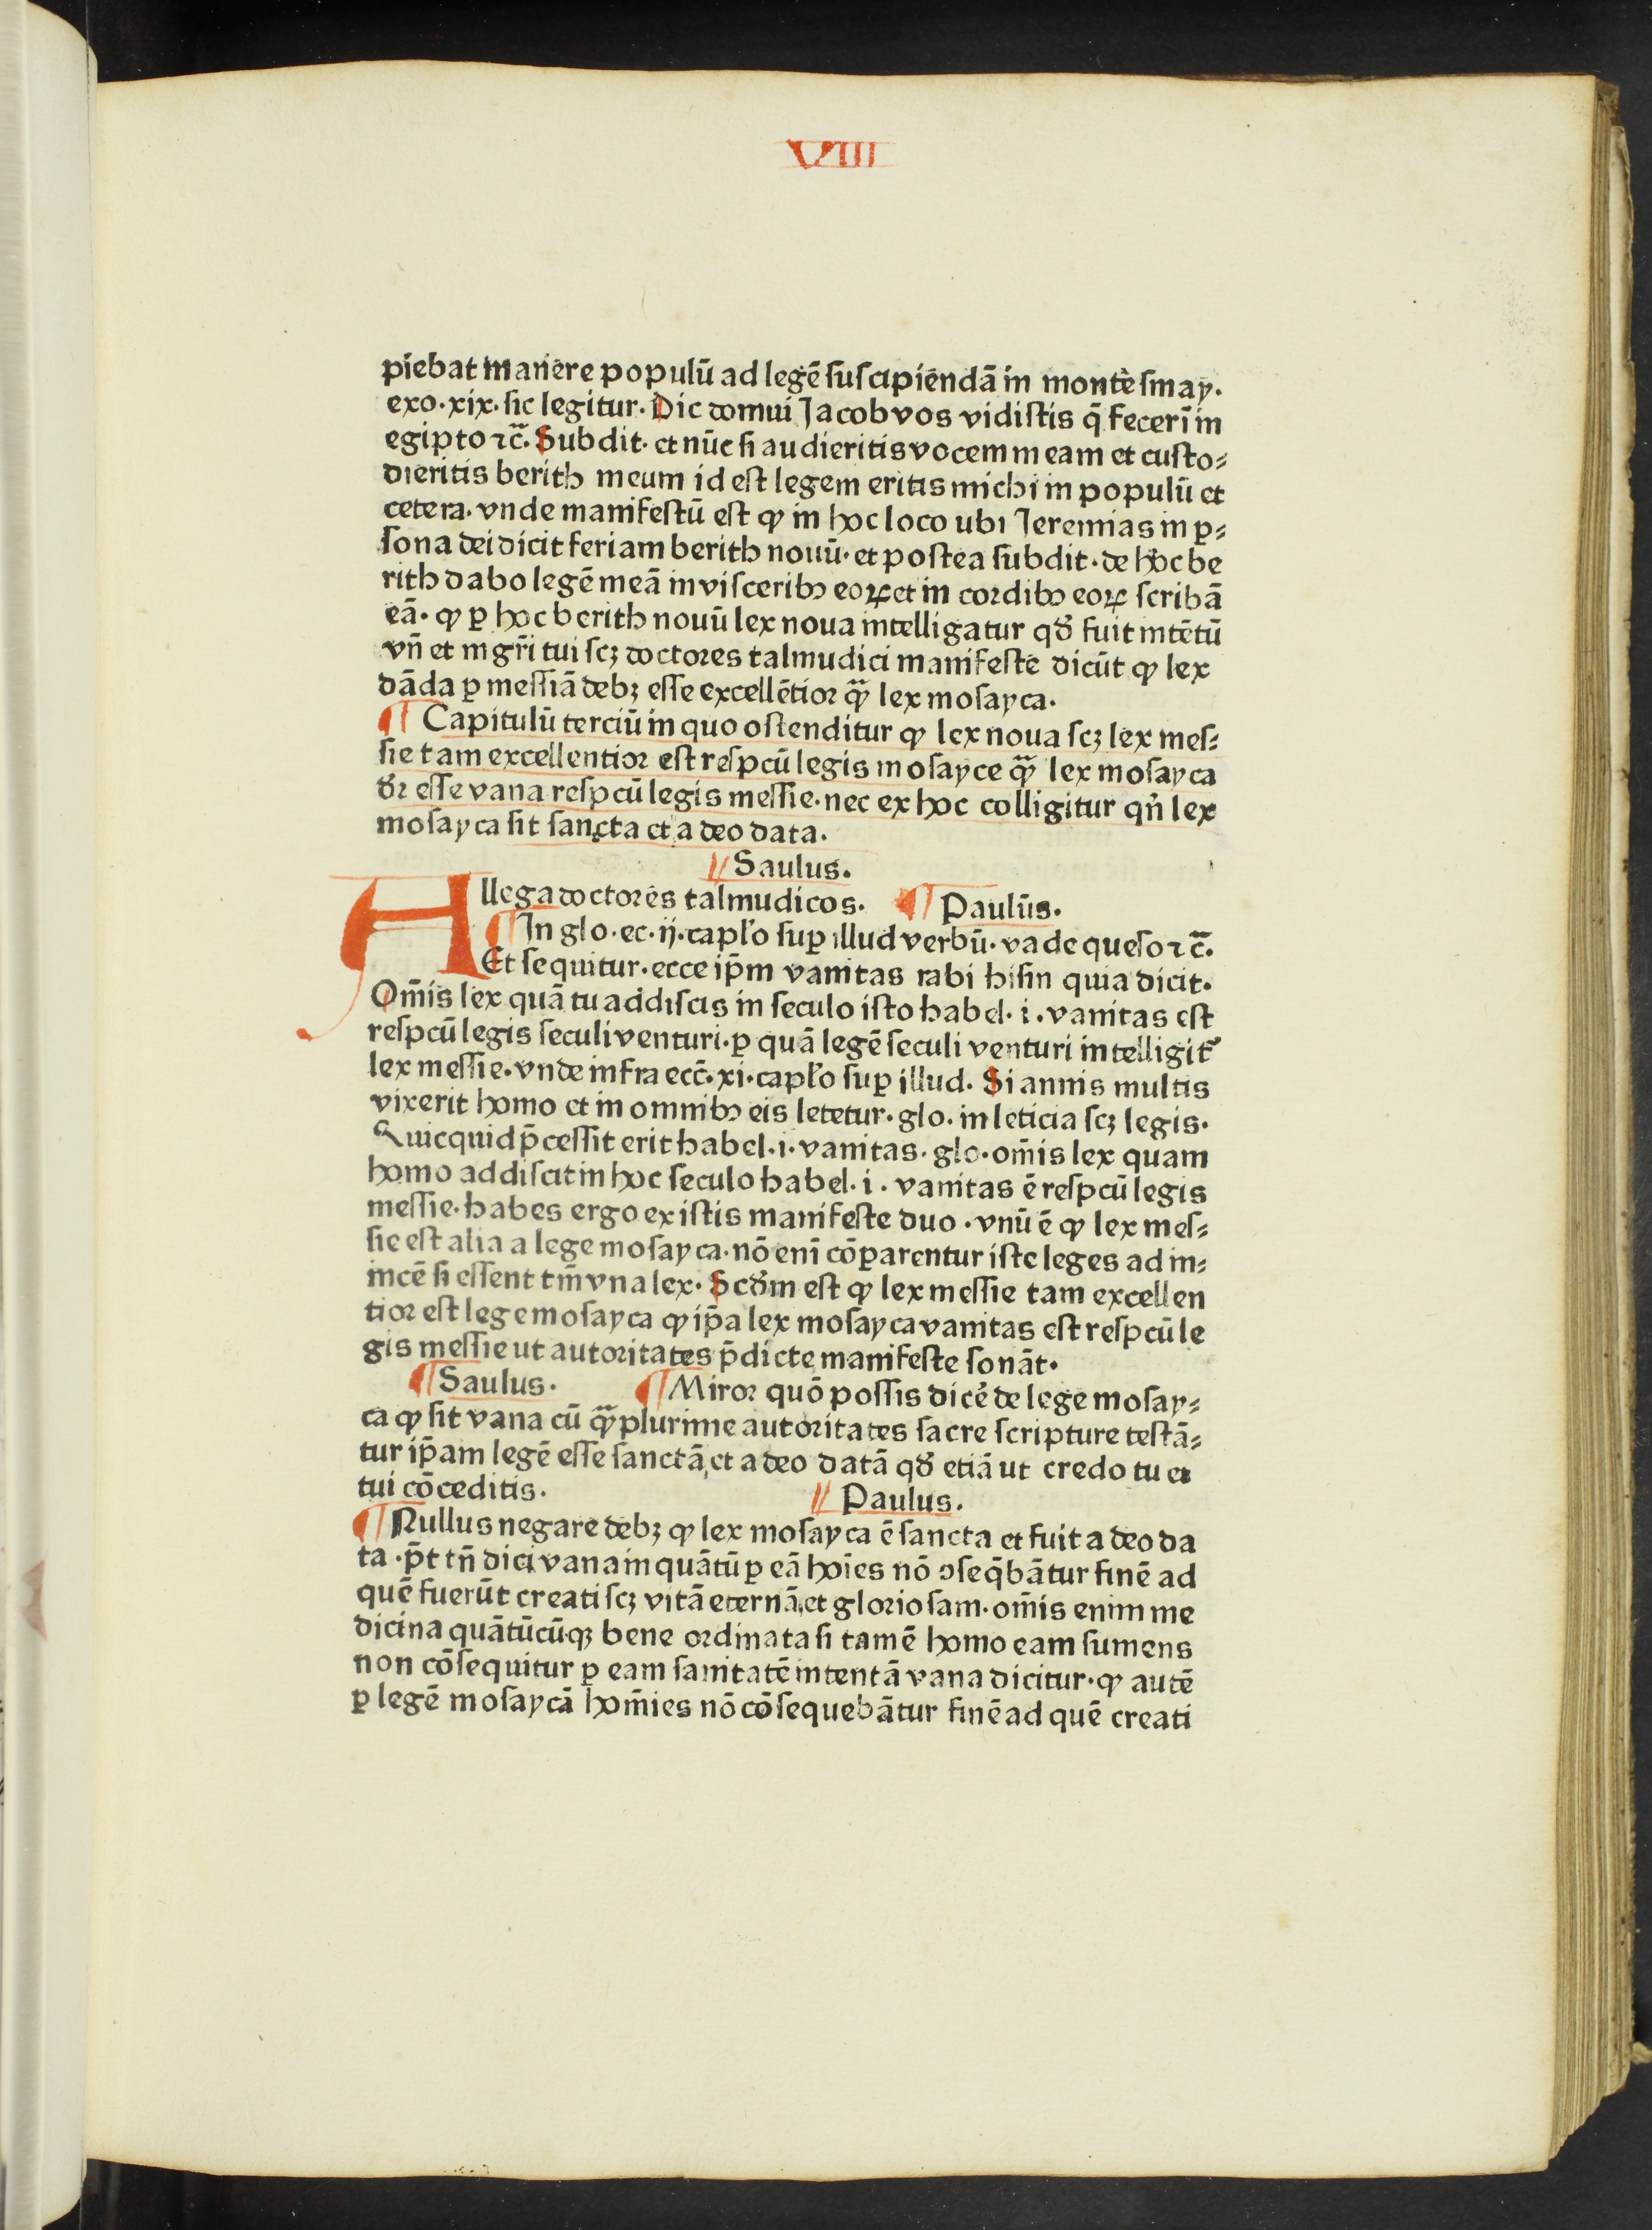 VIII
piebat manere populū ad legē suscipiendā in monte sinay.
exo. xix. sic legitur. Dic domui Jacob vos vidistis q̄ fecerī in
egipto ⁊c̄. Subdit. et nūc si audieritis vocem meam et custo⸗
dieritis berith meum id est legem eritis michi in populū et
cetera. vnde manifestū est ꝙ in hoc loco ubi Jeremias in ꝑ⸗
sona dei dicit feriam berith nouū. et postea subdit. de hoc be
rith dabo legē meā in visceribꝫ eoꝝ et in cordibꝫ eoꝝ scribā
eā. ꝙ ꝑ hoc berith nouū lex noua intelligatur qđ fuit intētū
vn̄ et mgr̄i tui scꝫ doctores talmudici manifeste dicūt ꝙ lex
dāda ꝑ messiā debꝫ esse excellētior qꝫ̄ lex mosayca.
¶ Capitulū terciū in quo ostenditur ꝙ lex noua scꝫ lex mes⸗
sie tam excellentior est respcū legis mosayce qꝫ̄ lex mosayca
dr̄ esse vana respcū legis messie. nec ex hoc colligitur qn̄ lex
mosayca sit sancta et a deo data.
Saulus.
Allega doctores talmudicos. ¶ Paulus.
¶ In glo. ec. ij. capl̓o suꝑ illud verbū. vade queso ⁊c̄.
Et sequitur. ecce ip̄m vanitas rabi hisin quia dicit.
Om̄is lex quā tu addiscis in seculo isto habel. i. vanitas est
respcū legis seculi venturi. ꝑ quā legē seculi venturi intelligit᷑
lex messie. vnde infra ecc̄. xi. capl̓o suꝑ illud. Si annis multis
vixerit homo et in omnibꝫ eis letetur. glo. in leticia scꝫ legis.
Quicquid p̄cessit erit habel. i. vanitas. glo. om̄is lex quam
homo addiscit in hoc seculo habel. i. vanitas ē respcū legis
messie. habes ergo ex istis manifeste duo. vnū ē ꝙ lex mes⸗
sie est alia a lege mosayca. nō enī cōparentur iste leges ad in⸗
uicē si essent tm̄ vna lex. Scđm est ꝙ lex messie tam excellen
tior est lege mosayca ꝙ ip̄a lex mosayca vanitas est respcū le
gis messie ut autoritates p̄dicte manifeste sonāt.
¶ Saulus. ¶ Miror quō possis dicē de lege mosay⸗
ca ꝙ sit vana cū qꝫ̄plurime autoritates sacre scripture testā⸗
tur ip̄am legē esse sanctā et a deo datā qđ etiā ut credo tu et
tui cōceditis. Paulus.
¶ Nullus negare debꝫ ꝙ lex mosayca ē sancta et fuit a deo da
ta. p̄t tn̄ dici vana inquātū ꝑ eā hoīes nō ꝯseq̄bātur finē ad
quē fuerūt creati scꝫ vitā eternā et gloriosam. om̄is enim me
dicina quātūcūqꝫ bene ordinata si tamē homo eam sumens
non cōsequitur ꝑ eam sanitatē intentā vana dicitur. ꝙ autē
ꝑ legē mosaycā hom̄ies nō cōsequebātur finē ad quē creati